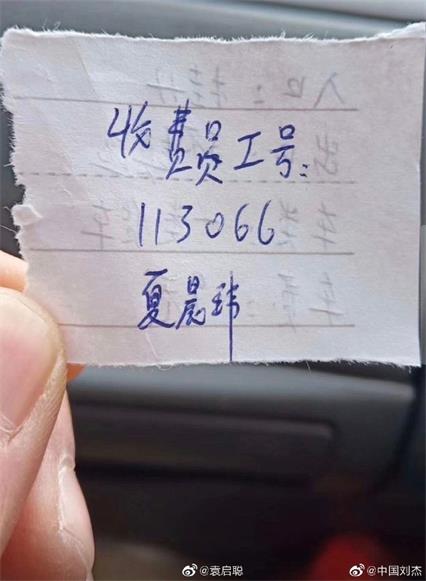 收费员工号:
113066
夏晨玮
@袁启聪
@中国刘杰